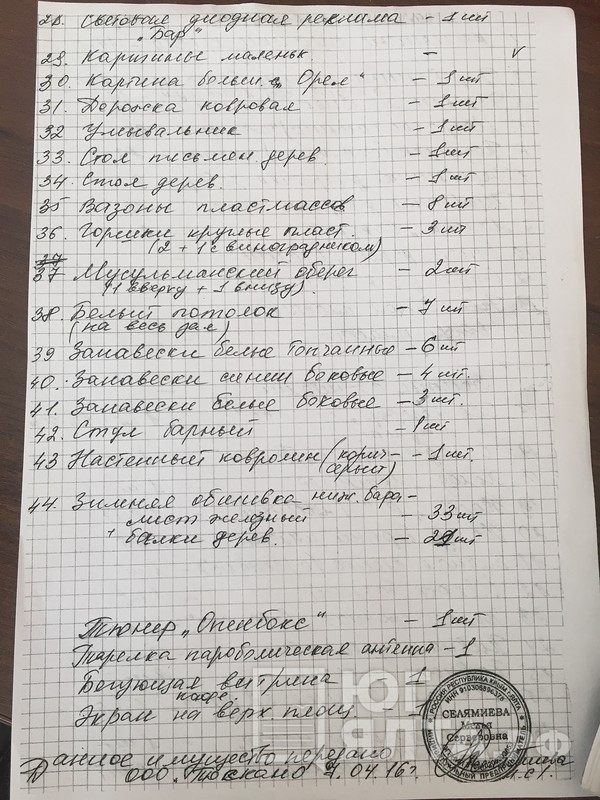 28. Световая диодная реклама - 1 шт
"Бар"
29. Картины маленьк - v
30. Картина больш. "Орел" - 1 шт
31. Дорожка ковровая - 1 шт
32 Умывальник - 1 шт
33. Стол письмен дерев. - 1 шт
34. Стол дерев. - 1 шт
35 Вазоны пластмассов - 8 шт
36. Горшки круглые пласт. - 3 шт
(2 + 1 с виноградником)
37 Мусульманский оберег - 2 шт
(1 вверху + 1 внизу).
38. Белый потолок - 7 шт
(на весь зал)
39 Занавески белые Топчанные - 6 шт
40. Занавески синие боковые - 4 шт.
41. Занавески белые боковые - 3 шт.
42. Стул барный - 1 шт
43 Настенный ковролин (корич- - 1 шт.
44. Зимняя обшивка ниж. бара -
лист железный - 33 шт
+ балки дерев. - шт
Тюнер "Опенбокс" - 1 шт
Тарелка параболическая антенна - 1
Бегующая витрина 1
Экран на верх. площ. 1
Данное имущество передано
ООО. Тоскано 04.16г.
РЕСПУБЛИКА КРЫМ
СЕЛЯМИЕВА
Серверовна
ИНДИВИДУАЛЬНЫЙ ПРЕДПРИНИМАТЕЛЬ